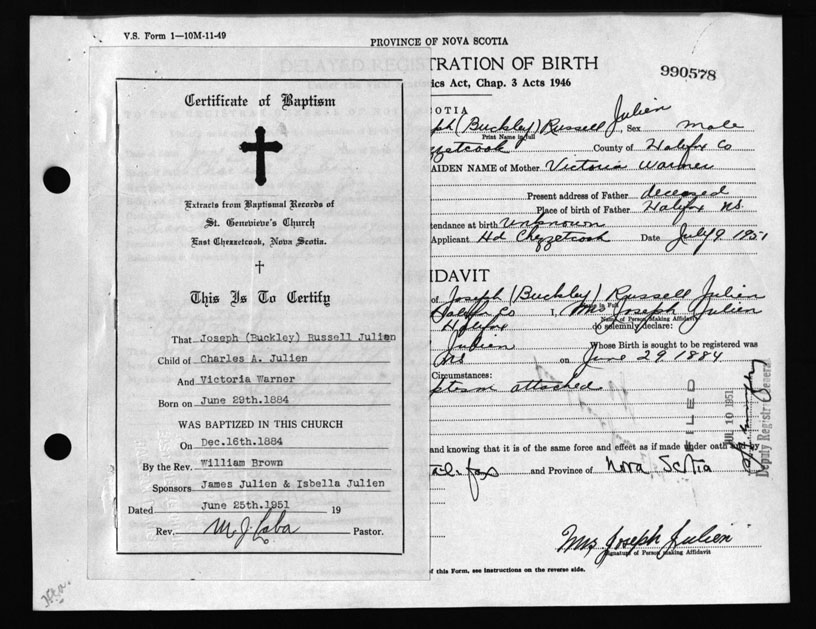 V.S. Form 1—10M-11-49
PROVINCE OF NOVA SCOTIA
TRATION OF BIRTH
ics Act, Chap. 3 Acts 1946
990578
Certificate of Baptism
Extracts from Baptismal Records of
St. Genevieve's Church
East Chezzetcook, Nova Scotia.
This Is To Certify
That Joseph (Buckley) Russell Julien
Child of Charles A. Julien
And Victoria Warner
Born on June 29th.1884
WAS BAPTIZED IN THIS CHURCH
On Dec.16th.1884
By the Rev. William Brown
Sponsors James Julien & Isbella Julien
Dated June 25th.1951 19
Rev. Pastor.
COTIA
ph (Buckley) Russell Julien, Sex male
Print Name in full
zzetcook County of Halifax Co
AIDEN NAME of Mother Victoria Warner
Present address of Father deceased
Place of birth of Father Halifax NS.
tendance at birth Unknown
Applicant Hd Chezzetcook Date July 9 1951
FIDAVIT
of Joseph (Buckley) Russell Julien
Halifax Co I, Mrs Joseph Julien
Name of Person Making Affidavit
Halifax do solemnly declare:
Julien Whose Birth is sought to be registered was
NS on June 29 1884
Circumstances:
ptism attached
FILED
JUL 10 1951
Deputy Registrar General
and knowing that it is of the same force and effect as if made under oath
and Province of Nova Scotia
Mrs Joseph Julien
Signature of Person Making Affidavit
f this Form, see instructions on the reverse side.